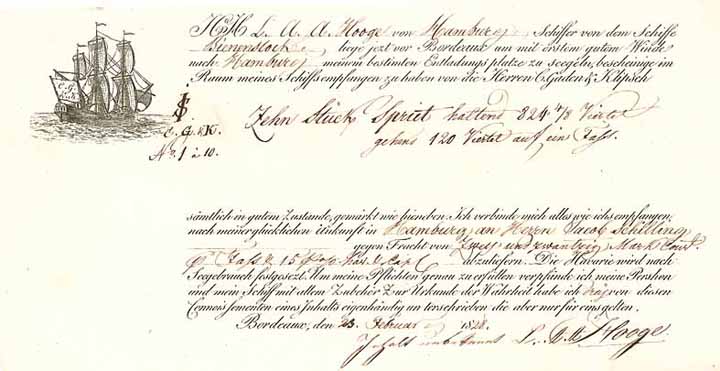 L. A. A. Hooge von Hamburg, Schiffer von dem Schiffe
Bienenstock, liege jezt vor Bordeaux um mit erstem gutem Winde
nach Hamburg meinem bestimten Entladungsplatze zu seegeln, bescheinige im
Raum meines Schiffs empfangen zu haben von die Herren C. Gäden & Klipsch
C. G. & K.
No. 1 à 10.
Zehn Stück Spriet haltend 824 4/8 Viertel
gehand 120 Viertel auf ein Fass.
sämtlich in gutem Zustande, gemärkt wie hieneben. Ich verbinde mich alles wie ichs empfangen,
nach meiner glücklichen Ankunft in Hamburg an Herrn Jacob Schilling
gegen Fracht von Zwey und zwantzig Mark Court.
Fass & 15 abzuliefern. Die Havarie wird nach
Seegebrauch festgesezt. Um meine Pflichten genau zu erfüllen verpfände ich meine Pershon
und mein Schiff mit allem Zubehör. Zur Urkunde der Wahrheit habe ich von diesen
Connoissementen eines Inhalts eigenhändig unterschrieben die aber nur für eins gelten.
Bordeaux, den 23 Februar 1828.
Inhalt unbekannt L. Hooge